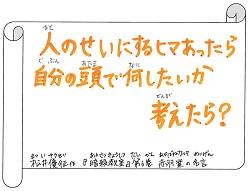 人のせいにするヒマあったら
自分の頭で何したいか
考えたら?
松井優征作『暗殺教室』第4巻 赤羽業の名言